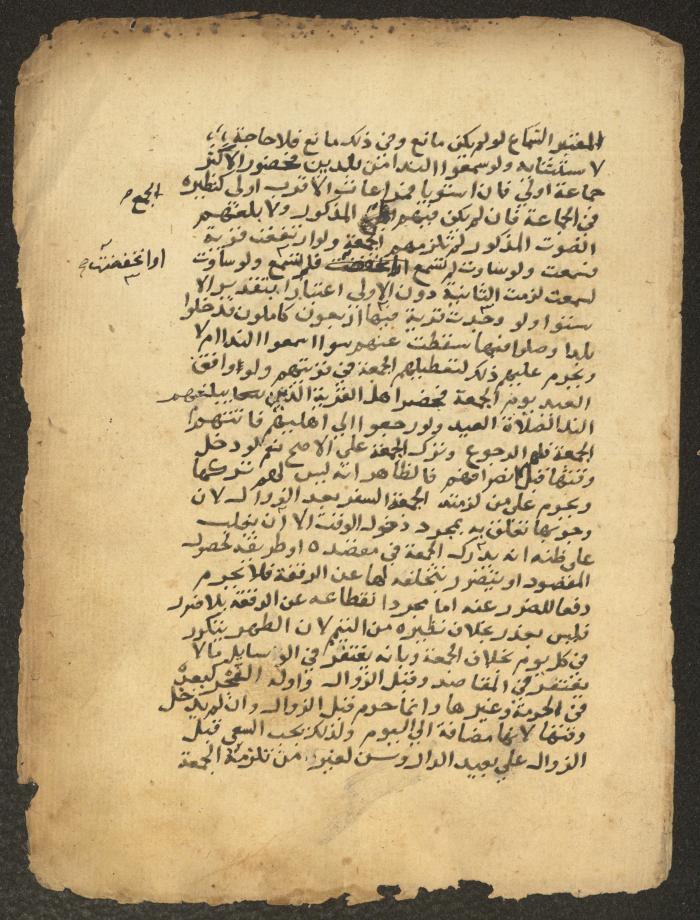 المعتبر السماع لو لم يكن مانع وفي ذلك مانع فلا حاجة
لاستثنايه ولو سمعوا الندا من بلدين فحضور الاكثر
جماعة اولي فان استويا فمراعاة الاقرب اولي كنظيره
في الجماعة فان لم يكن فيهم الجمع المذكور ولا بلغهم
الصوت المذكور لم تلزمهم الجمعة ولو ارتفعت قرية
فسمعت ولو ساوت لم تسمع او انخفضت فلم تسمع ولو ساوت
لسمعت لزمت الثانية دون الاولي اعتبارا بتقدير الا
ستوا ولو وجدت قرية فيها اربعون كاملون فدخلوا
بلدا وصلوا فيها سقطت عنهم سوا سمعوا الندا ام لا
ويحرم عليهم ذلك لتعطيلهم الجمعة في قريتهم ولو وافق
العيد يوم الجمعة فحضر اهل القرية الذين يبلغهم
الندا لصلاة العيد ولو رجعوا الي اهليهم فاتتهم
الجمعة فلهم الرجوع وترك الجمعة علي الاصح نعم لو دخل
وقتها قبل انصرافهم فالظاهر انه ليس لهم تركها
ويحرم علي من لزمته الجمعة السفر بعد الزوال لان
وجوبها تعلق به بمجرد دخول الوقت الا ان يغلب
علي ظنه انه يدرك الجمعة في مقصده او طريقه لحصول
المقصود او يتضرر بتخلفه لها عن الرفقة فلا يحرم
دفعا للضرر عنه اما مجرد انقطاعه عن الرفقة بلا ضرر
فليس بعذر بخلاف نظيره من التيمم لان الطهر يتكرر
في كل يوم بخلاف الجمعة وبانه يغتفر في الوسايل ما لا
يغتفر في المقاصد وقبل الزوال واوله الفجر كبعده
في الحرمة وغيرها وانما حرم قبل الزوال وان لم يدخل
وقتها لانها مضافة الي اليوم ولذلك يجب السعي قبل
الزوال علي بعيد الدار وسن لغير من تلزمه الجمعة
الجمع
او انخفضت